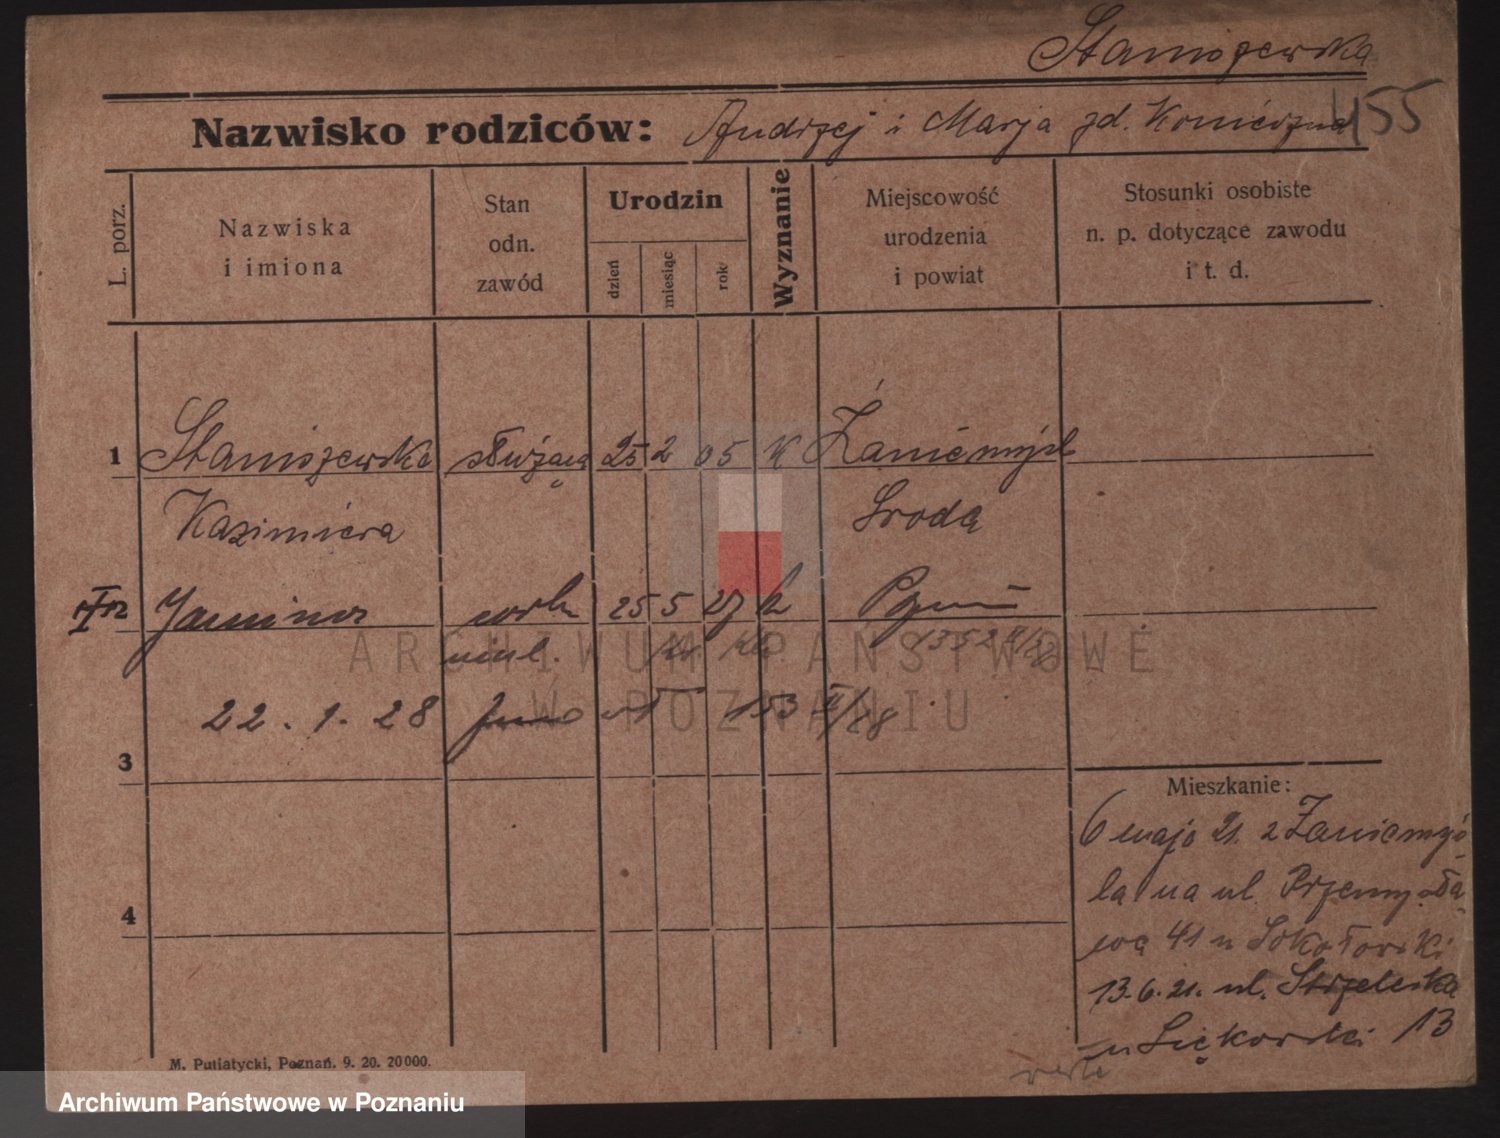 Staniszewska
Nazwisko rodziców: Andrzej i Marja zd. Konieczna 455
L. porz.
Nazwiska
i imiona
Stan
odn.
zawód
Urodzin
dzień
miesiąc
rok
Wyznanie
Miejscowość
urodzenia
i powiat
Stosunki osobiste
n. p. dotyczące zawodu
i t. d.
1 Staniszewska służąca 25 2 05 K Zaniemyśl
Kazimiera Środa
Janina córka 25 5 27 k Pozn
nieśl.
22. 1. 28
3
4
Mieszkanie:
6 maja 21. z Zaniemyś
la na ul. Przemysła
wą 41 u Sokołowski
13.6.21. ul. Strzelecka
u Siękowski 13
verte
M. Putiatycki, Poznań. 9. 20. 20000.
ARCHIWUM PAŃSTWOWE
W POZNANIU
Archiwum Państwowe w Poznaniu